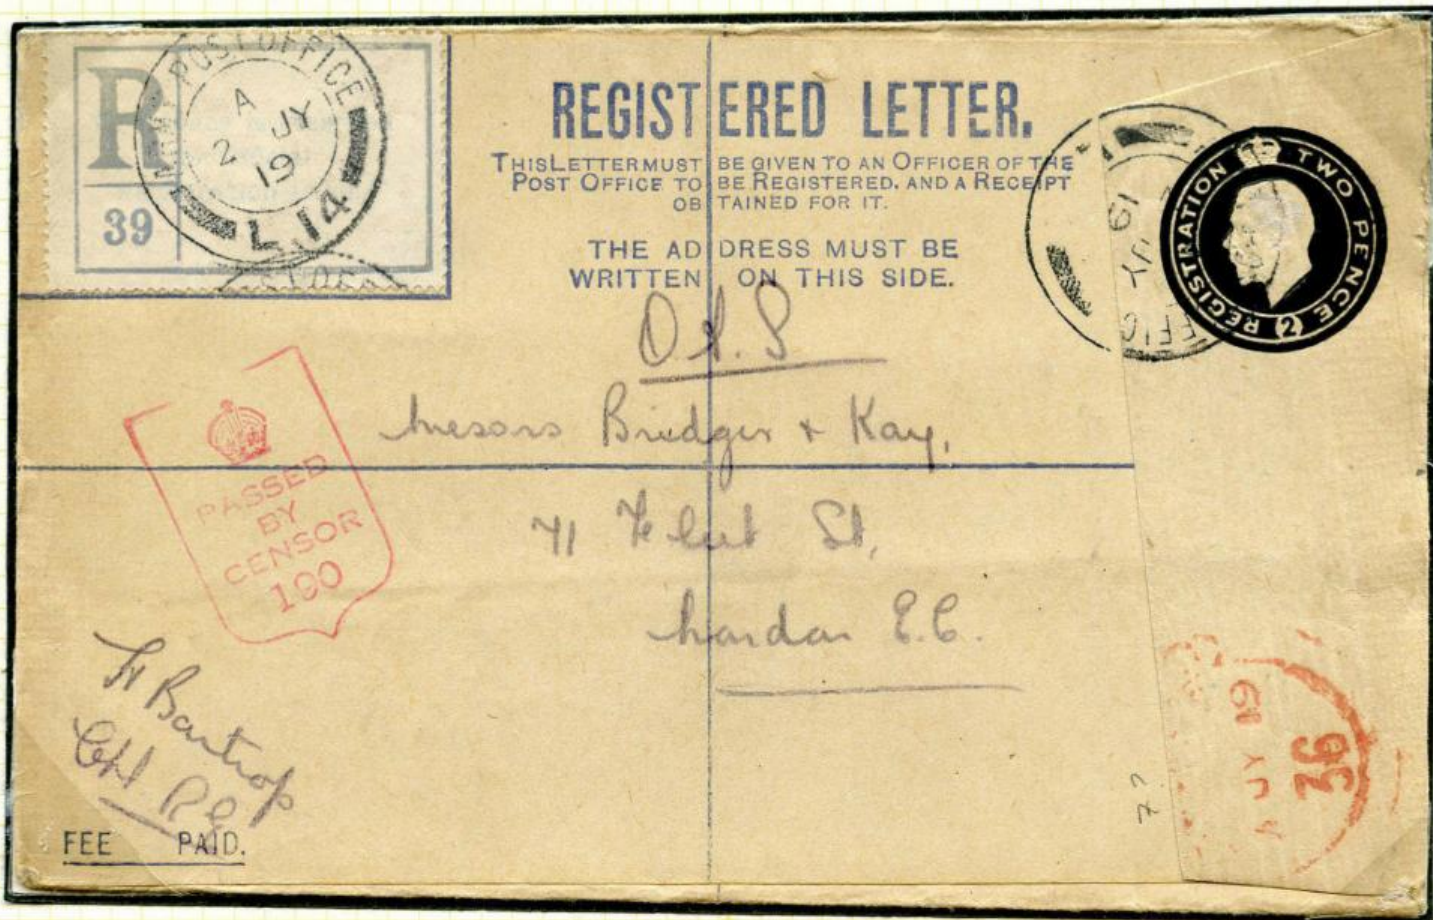 R
39
ARMY POST OFFICE
A
2 JY
19
L.14
ST OFF
REGISTERED LETTER.
THIS LETTER MUST BE GIVEN TO AN OFFICER OF THE
POST OFFICE TO BE REGISTERED. AND A RECEIPT
OBTAINED FOR IT.
THE ADDRESS MUST BE
WRITTEN ON THIS SIDE.
REGISTRATION TWO PENCE (2)
FFIC
JY
19
O.A.S
Messrs Bridger & Kay,
71 Fleet St,
London E.C.
PASSED
BY
CENSOR
190
Bartrop
Cpl RE
FEE PAID.
JY 19
36